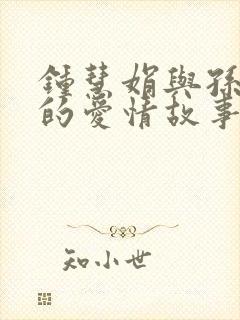 鍾慧娟與孫
的愛情故事
知小世